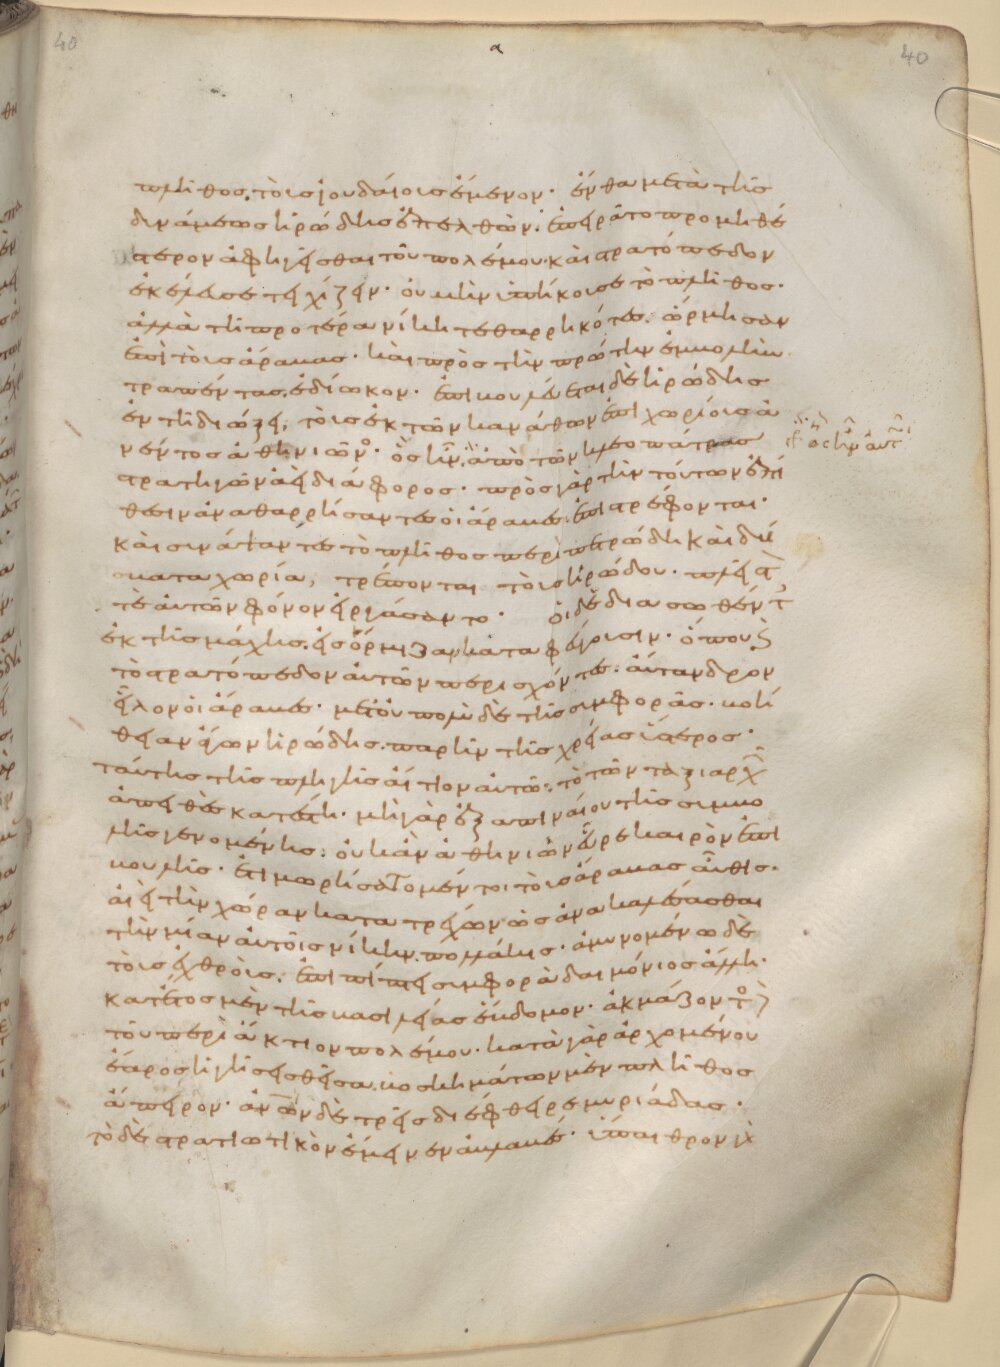 40
40
πλῆθος τοῖς ἰουδαίοις ἔμενον· ἔνθα μετὰ τῆς
δυνάμεως ἡρώδης ἐπελθὼν· ἐπειρᾶτο προμηθέ
στερον ἀφηγεῖσθαι τοῦ πολέμου· καὶ στρατόπεδον
ἐκέλευσε τειχίζειν· οὐ μὴν ὑπήκουσε τὸ πλῆθος·
ἀλλὰ τῆ προτέρα νίκη τεθαρρηκότες· ὥρμησαν
ἐπὶ τοὺς ἄραβας· καὶ πρὸς τὴν πρώτην ἐμβολὴν
τραπέντας ἐδίωκον· ἐπιβουλεύεται δὲ ἡρώδης
ἐν τῆ διώξει, τοὺς ἐκ τῶν κανάθων ἐπιχωρίους ἀ
νέντος ἀθηνίων(ος)· ὃς ἦν ἀπὸ τῶν κλεοπάτρας
στρατηγῶν ἀεὶ διάφορος· πρὸς γὰρ τὴν τούτων ἐπί
θεσιν ἀναθαρρήσαντες οἱ ἄραβες ἐπιστρέφονται·
καὶ συνάψαντες τὸ πλῆθος περὶ πετρώδη καὶ δύ
σβατα χωρία, τρέπονται τοὺς ἡρώδου· πλεῖστ
τε αὐτῶν φόνον εἰργάσαντο· οἱ δὲ διασωθέντ
ἐκ τῆς μάχης, εἰς ὄρμιζα καταφεύγουσιν· ὅπου κ
τὸ στρατόπεδον αὐτῶν περισχόντες· αὔτανδρον
εἷλον οἱ ἄραβες· μετ' οὐ πολὺ δὲ τῆς συμφορᾶς· βοή
θειαν ἄγων ἡρώδης· παρῆν τῆς χρείας ὕστερος·
ταύτης τῆς πληγῆς αἴτιον αὐτῶ· τὸ τῶν ταξιάρχ
ἀπειθὲς κατέστη· μὴ γὰρ ἐξαπιναίου τῆς συμβο
λῆς γενομένης· οὐκ ἂν ἀθηνίων εὗρε καιρὸν ἐπι
βουλῆς· ἐτιμωρήσατο μέντοι τοὺς ἄραβας αὖθις·
ἀεὶ τὴν χώραν κατατρέχων ὡς ἀνακαλέσασθαι
τὴν μίαν αὐτοῖς νίκην πολλάκις· ἀμυνομένω δὲ
τοὺς ἐχθροὺς· ἐπιπίπτει συμφορὰ δαιμόνιος ἄλλη·
κατ' ἔτος μὲν τῆς βασιλείας ἕβδομον· ἀκμάζοντο
τοῦ περὶ ἄκτιον πολέμου· κατὰ γὰρ ἀρχομένου
ἔαρος ἡ γῆ σεισθεῖσα, βοσκημάτων μὲν πλῆθος
ἄπειρον· ἀνῶν δὲ τρεῖς διέφθειρε μυριάδας·
τὸ δὲ στρατιωτικὸν ἔμεινεν ἀβλαβές· ὕπαιθρον γὰ